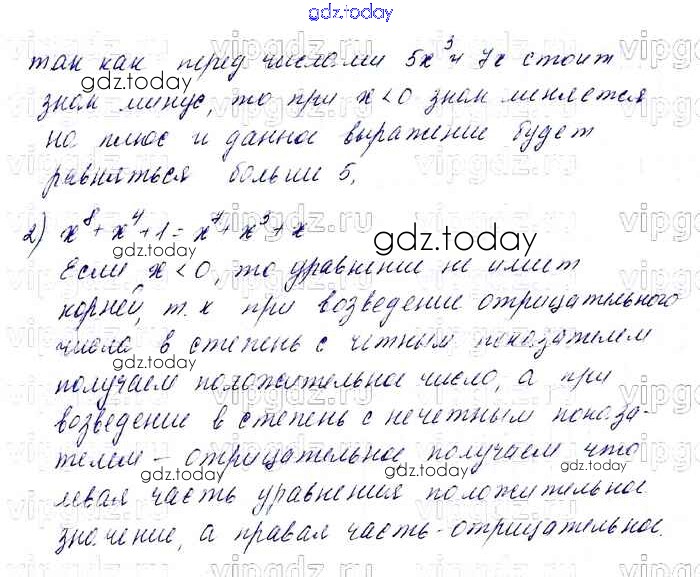 gdz.today
так как перед числами 5x³ и 7x стоит
знак минус, то при x<0 знак меняется
на плюс и данное выражение будет
равняться больши 5.
2) x⁸ + x⁴ + 1 = x⁷ + x³ + x
Если x<0, то уравнение не имеет
корней, т.к при возведение отрицательного
число в степень с четным показателем
получаем положительное число, а при
возведение в степень с нечетным показа-
телем – отрицательное получаем что
левая часть уравнения положительное
значение, а правая часть - отрицательное.